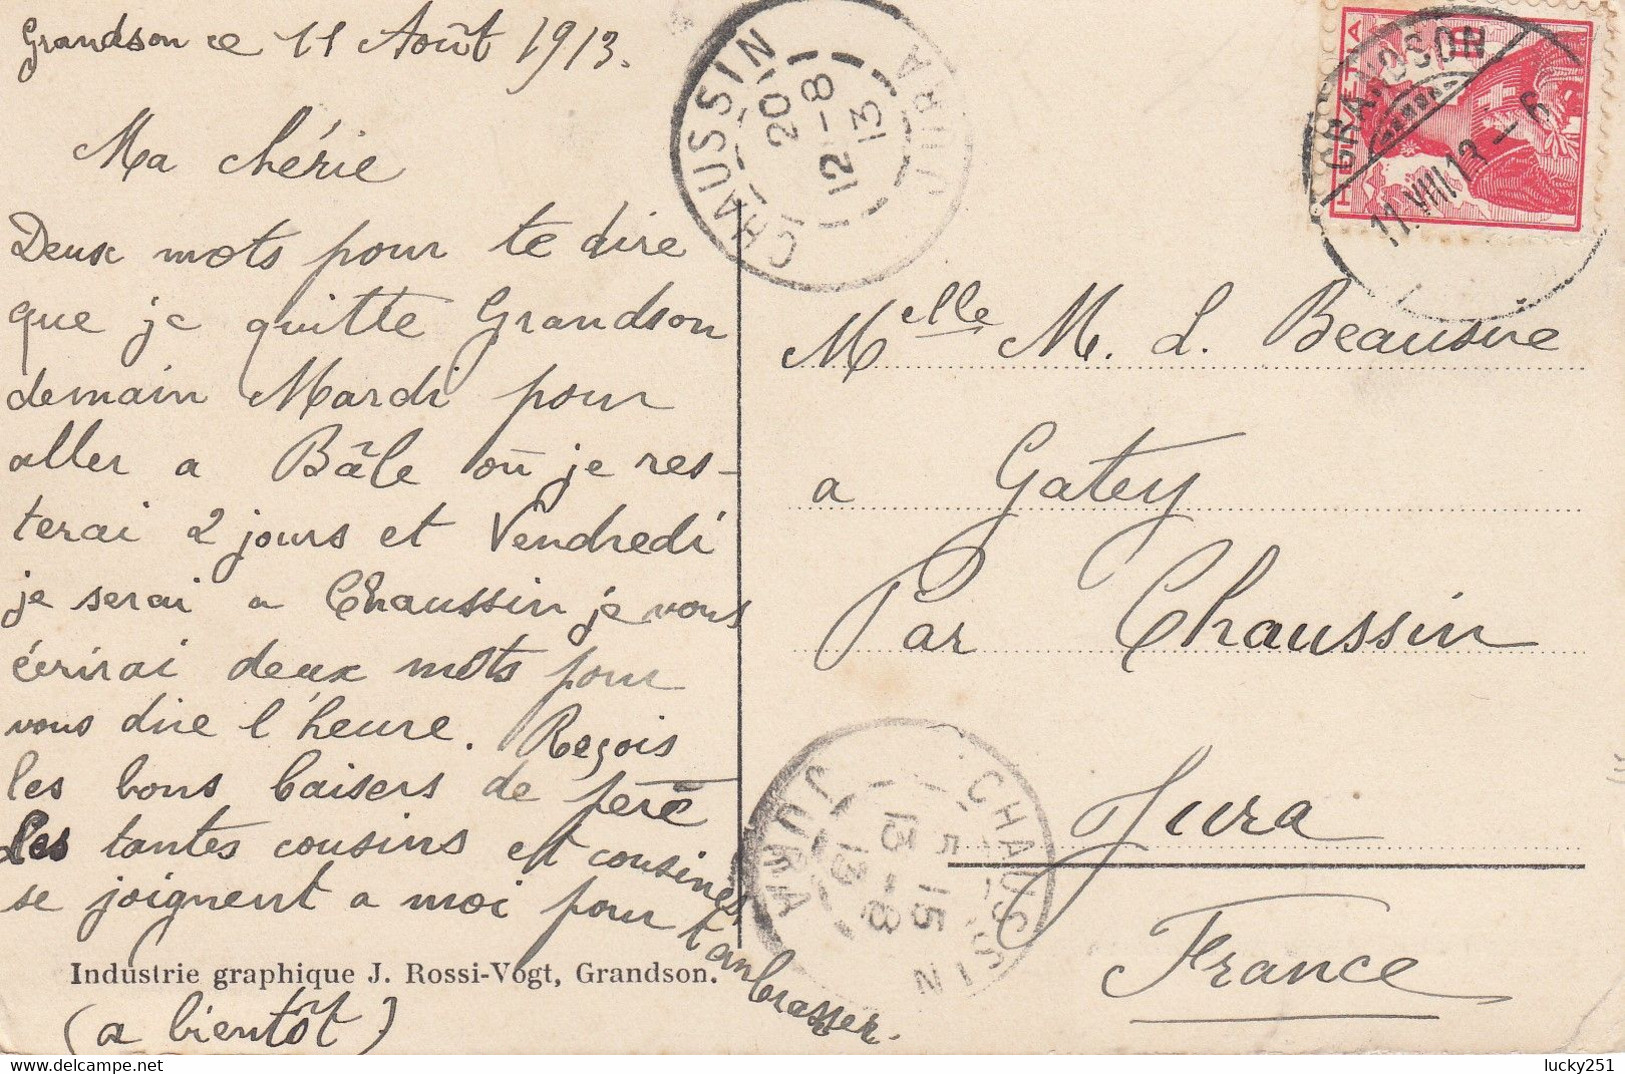 Grandson ce 11 Août 1913.
Ma chérie
Deux mots pour te dire
que je quitte Grandson
demain Mardi pour
aller a Bâle où je res-
terai 2 jours et Vendredi
je serai a Chaussin je vous
écrirai deux mots pour
vous dire l'heure. Reçois
les bons baisers de père
Les tantes cousins et cousines
se joignent a moi pour t'embrasser.
Industrie graphique J. Rossi-Vogt, Grandson.
(a bientôt)
CHAUSSIN
20
12-8
13
JURA
HELVETIA
10
GRANDSON
11.VIII.13-6
Melle M. L. Beausire
a Gatey
Par Chaussin
Jura
France
CHAUSSIN
5 15
13 -8
13
JURA
lucky251